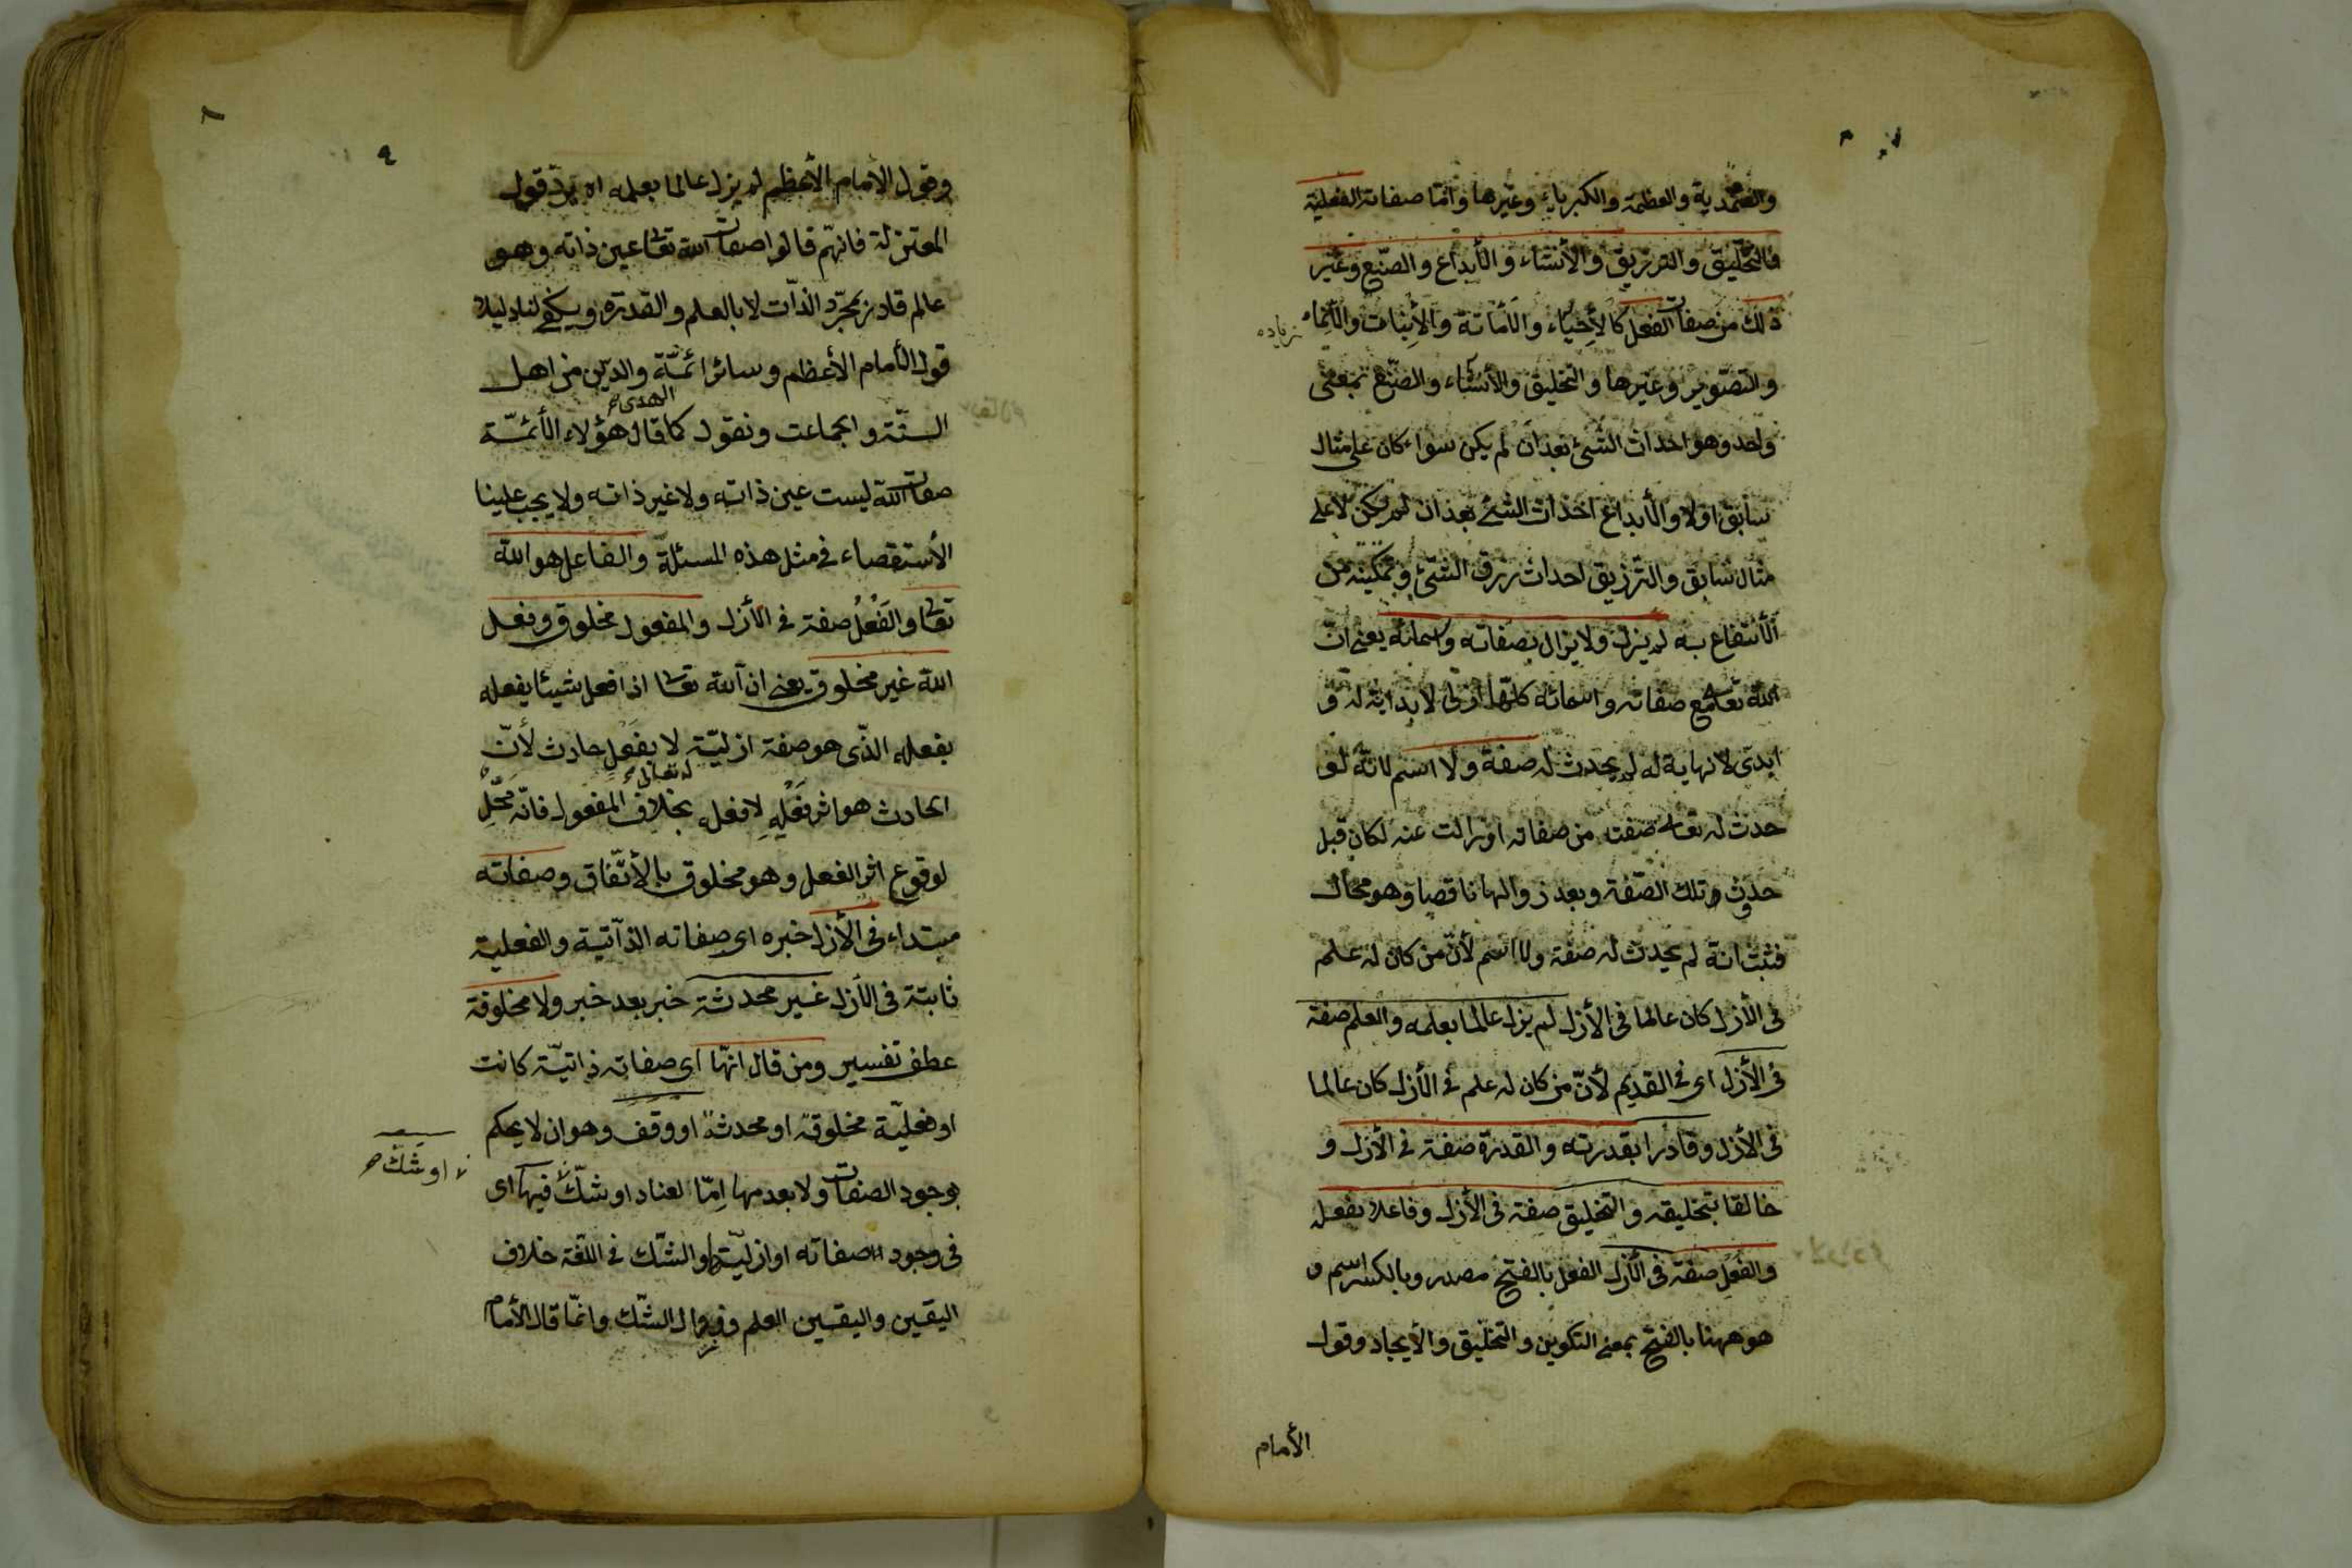 والصمدية والعظمة والكبرياء وغيرها وامّا صفاته الفعلية
فالتخليق والترزيق والأنشاء والأبداع والصنع وغير
ذلك من صفات الفعل كالأحياء والأماتة والأنبات والأنماء
زياده
والتصوير وغيرها والتخليق والأنشاء والصنع بمعنى
واحد وهو احداث الشئ بعد ان لم يكن سواء كان على مثال
سابق اولا والأبداع احداث الشئ بعد ان لم يكن لا على
مثال سابق والترزيق احداث رزق الشئ وتمكينه من
الأنتفاع به لم يزل ولا يزال بصفاته واسمائه يعنى انّ
الله تعالى مع صفاته واسمائه كلّها ازلى لا بداية له و
ابدى لا نهاية له لم يحدث له صفة ولا اسم لانّه لو
حدث له تعالى صفت من صفاته او زالت عنه لكان قبل
حدوث تلك الصّفة وبعد زوالها ناقصا وهو محال
فثبت انه لم يحدث له صفة ولا اسم لأنّ من كان له علم
فى الأزل كان عالما فى الأزل لم يزل عالما بعلمه والعلم صفة
فى الأزل اى فى القديم لأنّ من كان له علم فى الأزل كان عالما
فى الأزل وقادرا بقدرته والقدرة صفة فى الأزل و
خالقا بتخليقه والتخليق صفة فى الأزل وفاعلا بفعله
والفعل صفة فى الأزل الفعل بالفتح مصدر وبالكسر اسم و
هو ههنا بالفتح بمعنى التكوين والتخليق والأيجاد وقول
الأمام
٦
وقول الأمام الأعظم لم يزل عالما بعلمه اه يردّ قول
المعتزلة فانهّم قالوا صفات الله تعالى عين ذاته وهو
عالم قادر بمجرّد الذّات لا بالعلم والقدرة ويكفى لنا دليلا
قول الأمام الأعظم وسائر ائمّة والدّين من اهل
الهدى
السنّة والجماعت ونقول كما قال هؤلاء الأئمّة
صفات الله ليست عين ذاته ولا غير ذاته ولا يجب علينا
الأستقصاء فى مثل هذه المسئلة والفاعل هو الله
تعالى والفَعْلُ صفة فى الأزل والمفعول مخلوق وفعل
الله غير مخلوق يعنى ان الله تعالى اذا فعل شيئا يفعله
بفعله الذّى هو صفة ازليّة لا بفعل حادث لأنّ
له تعالى
الحادث هو اثر فعْلِهِ لا فعله بخلاف المفعول فانّه محلّ
لوقوع اثر الفعل وهو مخلوق بالأتّفاق وصفاته
مبتداء فى الأزل خبره اى صفاته الذّاتية والفعلية
ثابتة فى الأزل غير محدثة خبر بعد خبر ولا مخلوقة
عطف تفسير ومن قال انهّا اى صفاته ذاتيّة كانت
او فعليّة مخلوقة او محدثة او وقف وهو ان لا يحكم
او شك
بوجود الصفات ولا بعدمها اِمّا لعناد او شكّ فيها اى
فى وجود صفاته او ازليّتها والشّك فى اللغة خلاف
اليقين واليقين العلم وزوال الشّك وانمّا قال الأمام